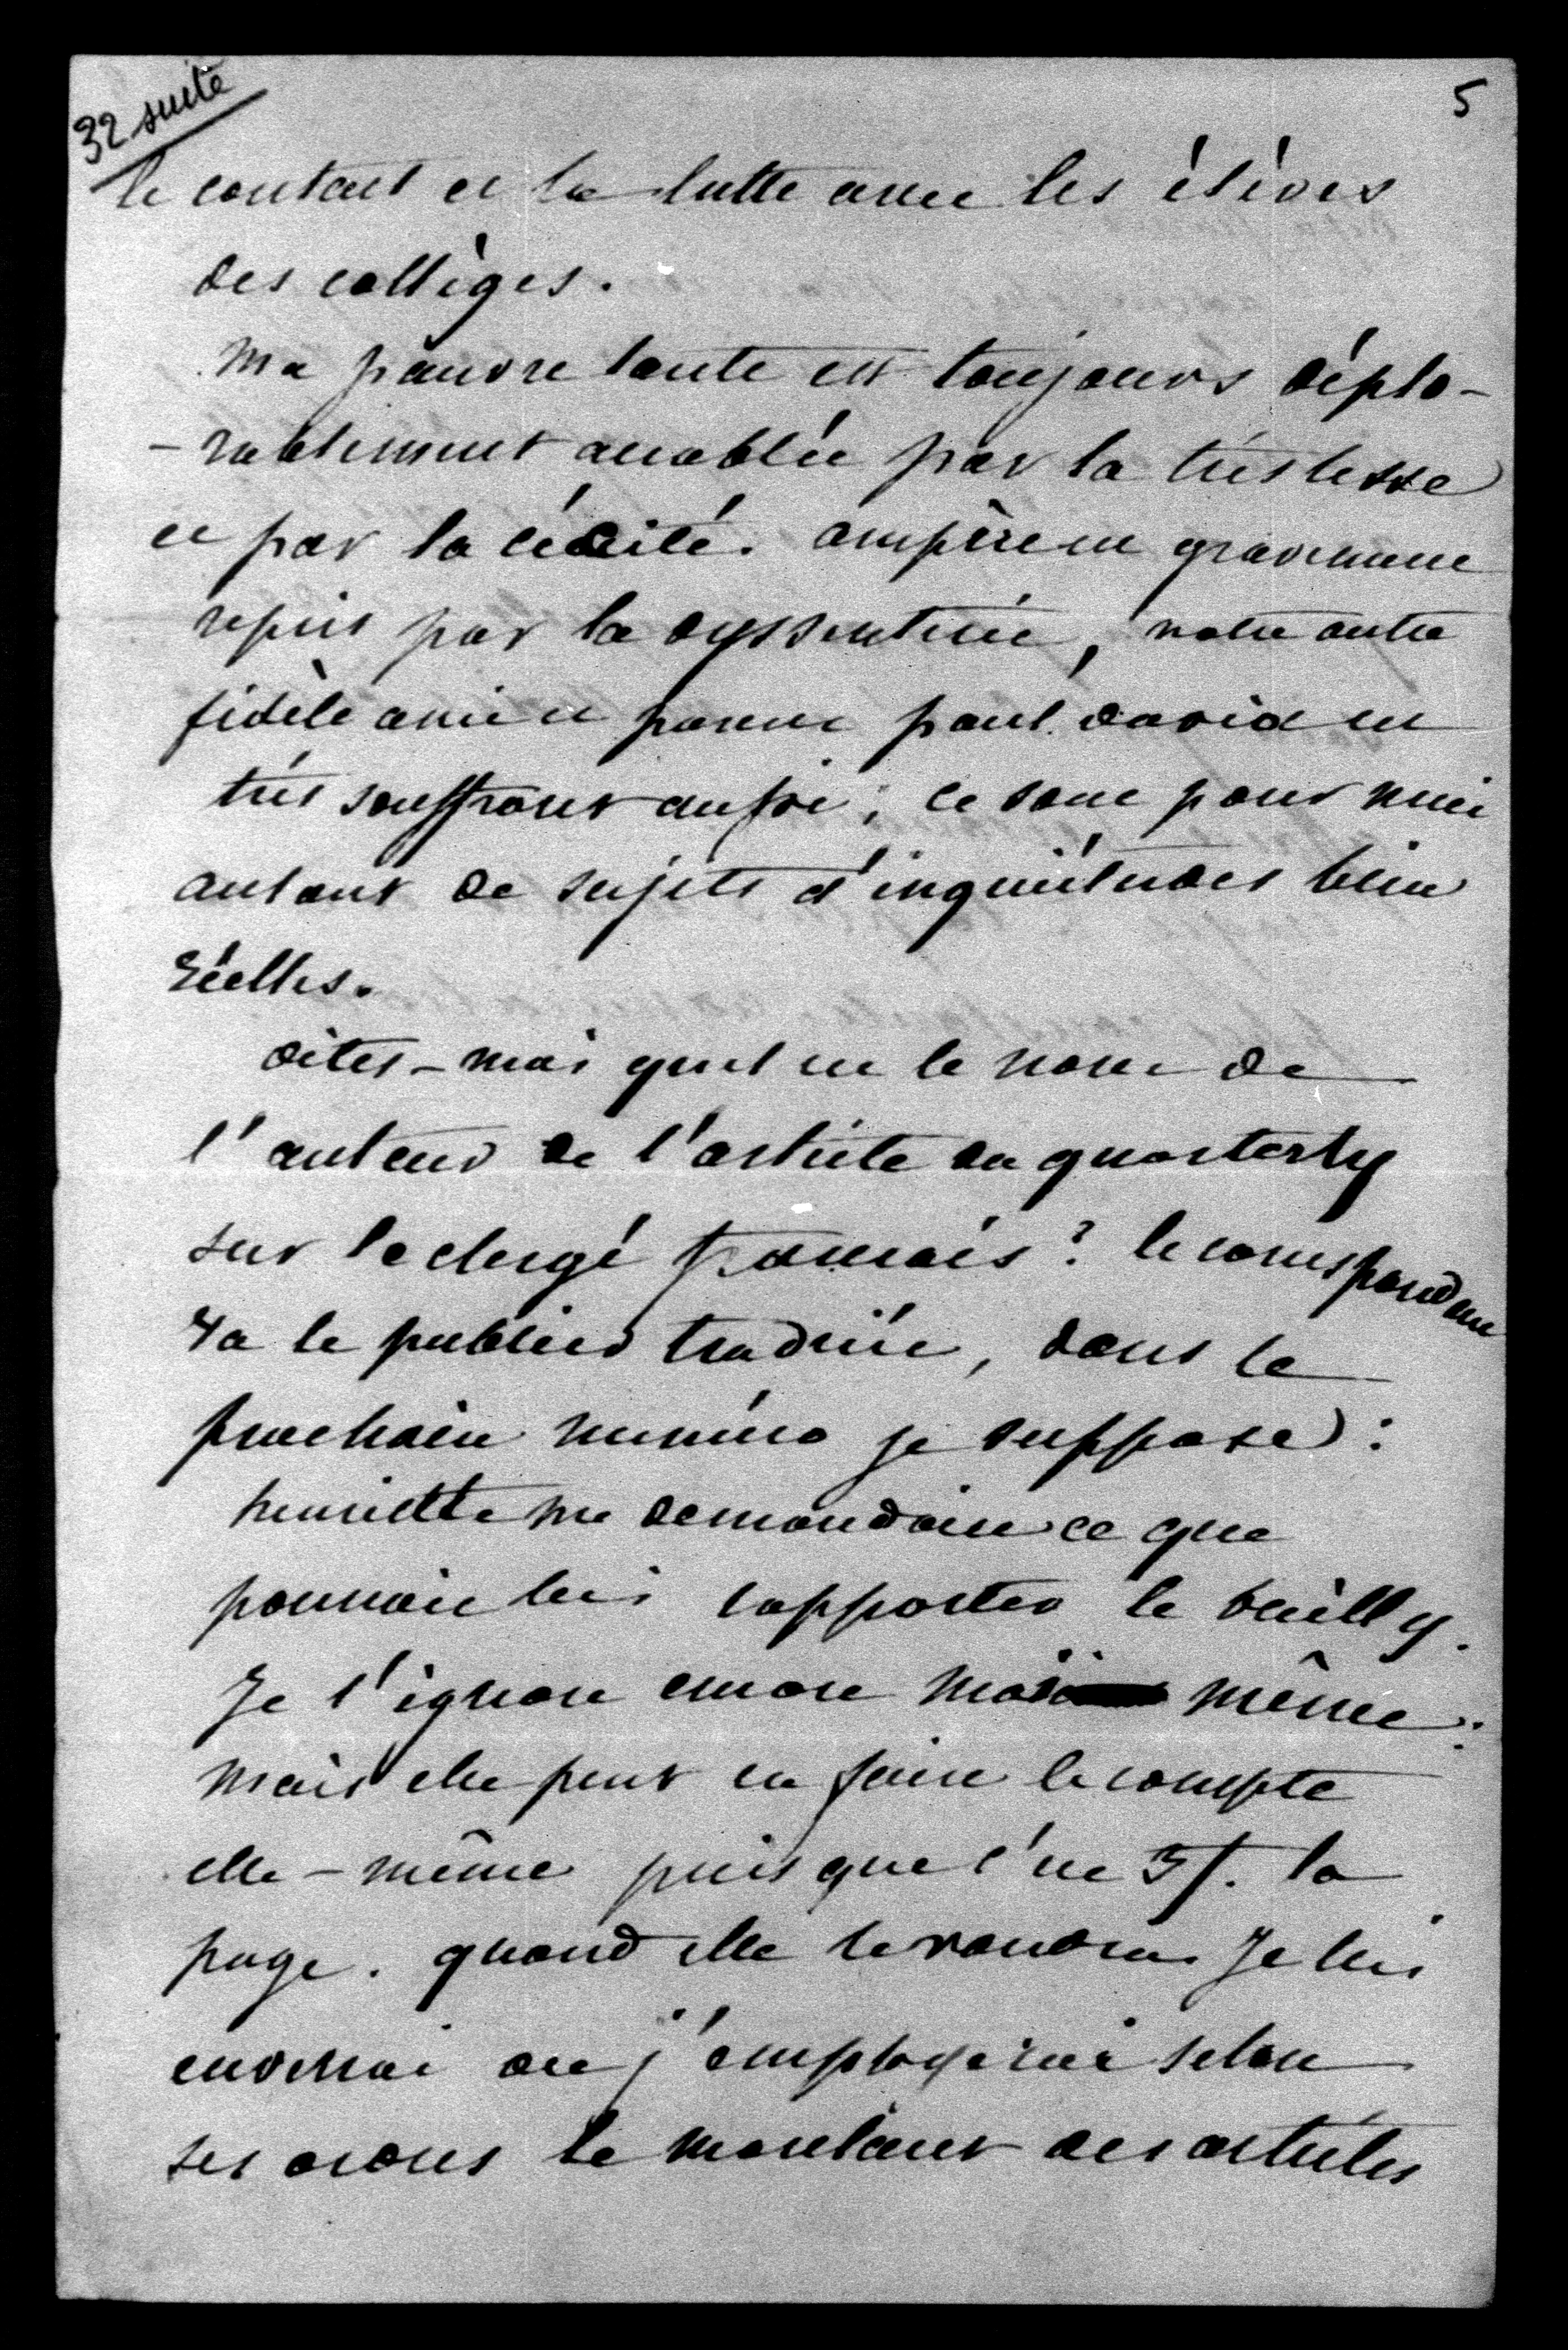 32 suite
5
le contact et la lutte avec les élèves
des collèges.
Ma pauvre tante est toujours déplo-
-rablement accablée par la tristesse
et par la cécité. ampère est gravement
repris par la dyssenterie, notre autre
fidèle ami et parent paul david est
très souffrant aussi; ce sont pour moi
autant de sujets d'inquiétudes bien
réelles.
dites-moi quel est le nom de
l'auteur de l'article du quarterly
sur le clergé français? le correspondant
va le publier traduit, dans le
prochain numéro je suppose:
henriette me demandait ce que
pouvait lui rapporter le
Je l'ignore encore moi même:
mais elle peut en faire le compte
elle-même puisque c'est 5f. la
page. quand elle le voudra Je lui
enverrai ou j'emploierai selon
ses ordres le montant des articles